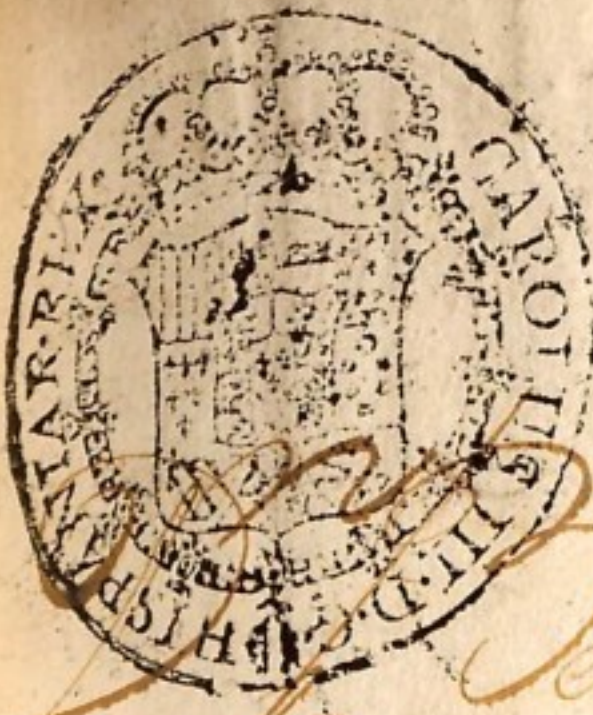 CAROLUS III·D·G·HISPANIAR·REX·